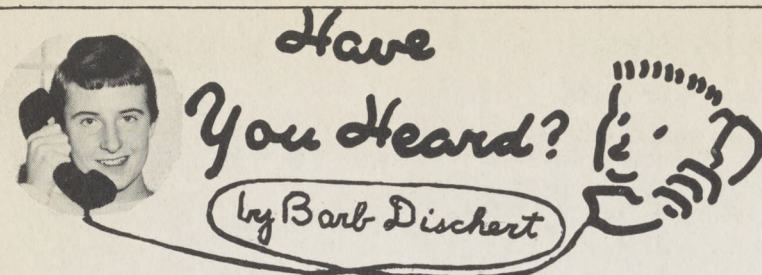 Have
You Heard?
by Barb Dischert